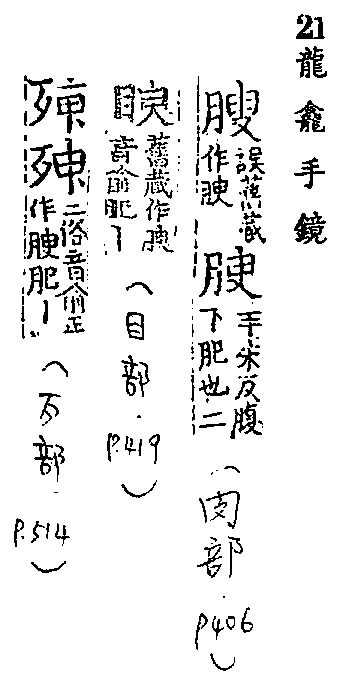 21 龍龕手鏡
膄 誤舊藏作腴 腴 羊朱反腹下肥也二 (肉部.P406)
舊藏作腴音俞肥丨 (目部.P.419)
二俗音俞正作腴肥丨 (歹部.P.514)